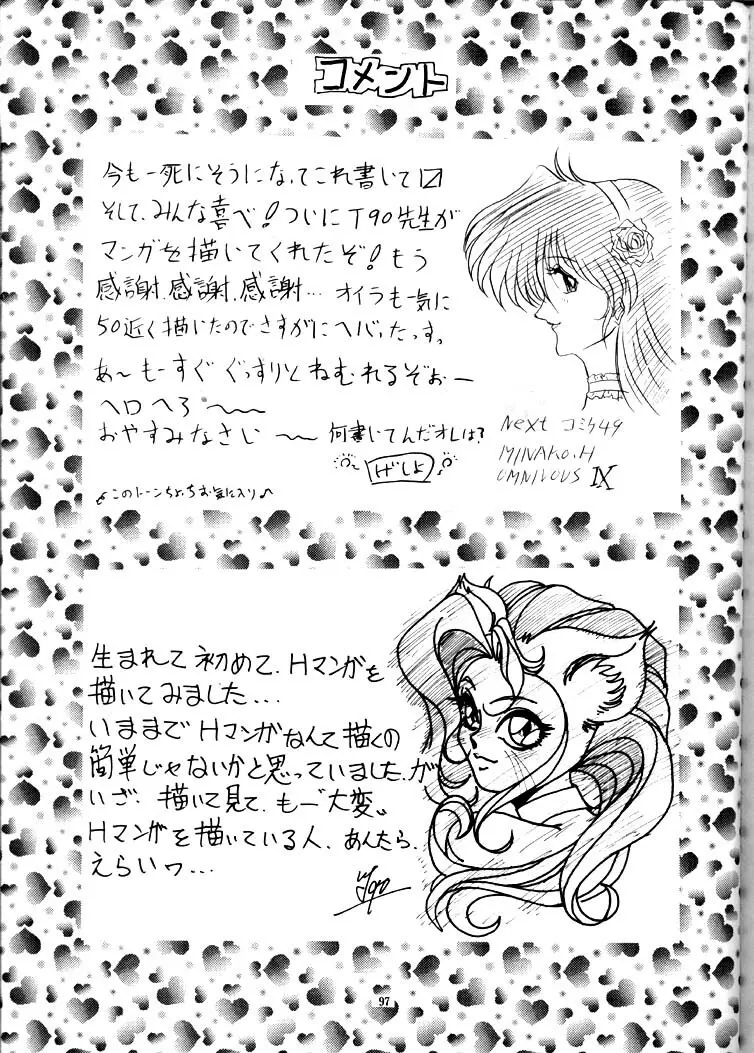 コメント
今も一死にそうになってこれ書いて〼
そして、みんな喜べ!ついにT90先生が
マンガを描いてくれたぞ!もう
感謝.感謝.感謝… オイラも一気に
50近く描いたのでさすがにヘバったっす
あ〜もーすぐぐっすりとねむれるぞぉー
ヘロヘろ〜〜
おやすみなさい〜 何書いてんだオレは?
げしょ
このトーンちょっちお気に入り♪
Next コミケ49
MINAKO.H
OMNIVOUS IX
生まれて初めて、Hマンガを
描いてみました...
いままでHマンガなんて描くの
簡単じゃないかと思っていました.が
いざ、描いて見て、もー“大変„
Hマンガを描いている人、あんたら、
えらいワ...
T90
97